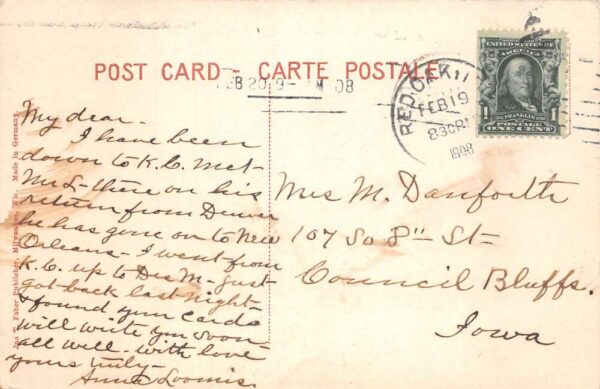 POST CARD – CARTE POSTALE
FEB 20 9- M 08
RED OAK
FEB 19
830 PM
1908
UNITED STATES OF AMERICA
1 FRANKLIN 1
POSTAGE
ONE CENT
My dear-
I have been
down to K.C. met-
Mr L- there on his
return from Denver
he has gone on to New
Orleans- I went from
K.C. up to Des M- just
got back last night-
& found your cards
will write you soon-
all well- with love
yours truly-
Anna Loomis.
Mrs M. Danforth
107 So 8" St-
Council Bluffs.
Iowa
Faber Publisher, Milwaukee, Wis. Made in Germany.